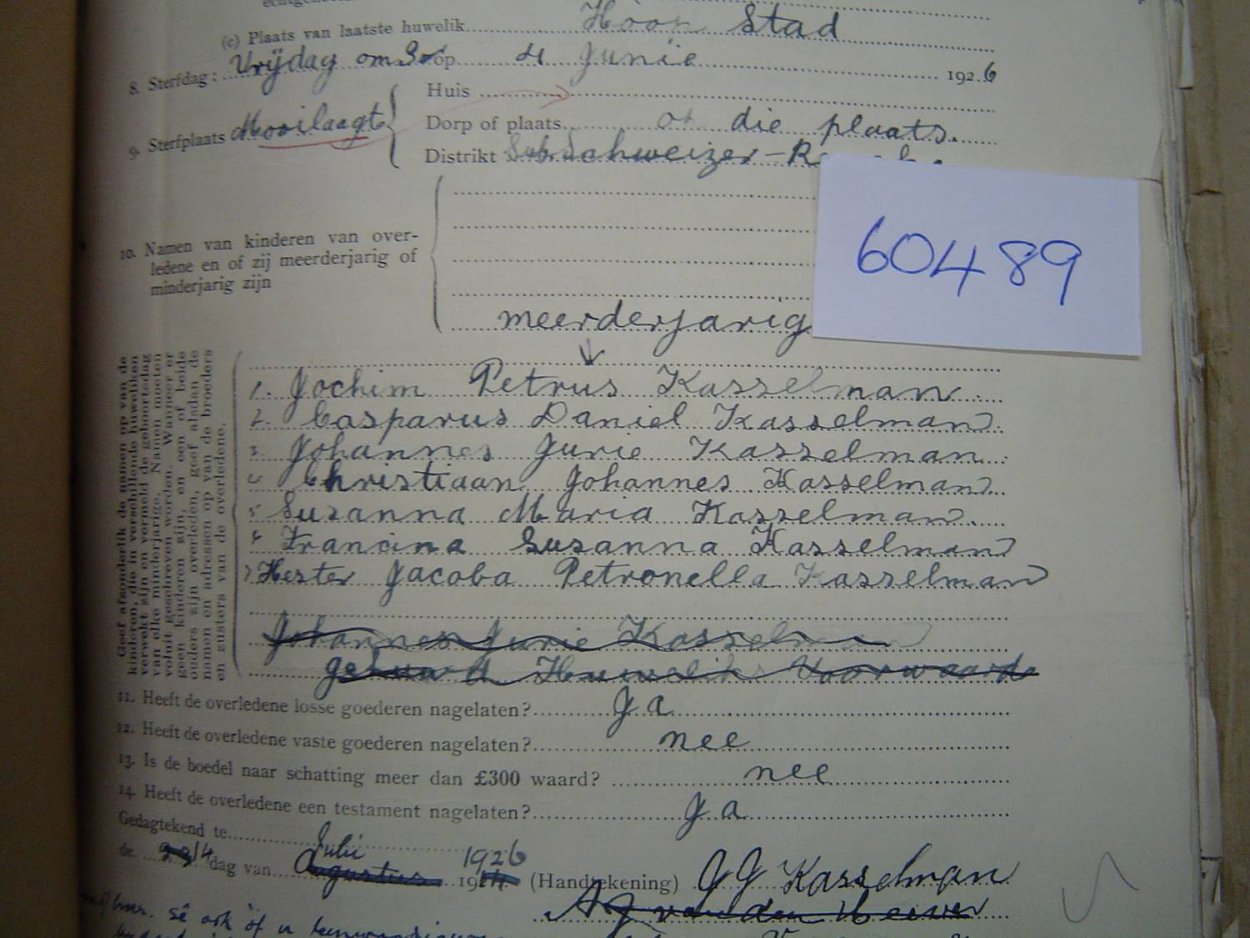 (c) Plaats van laatste huwelik Hoop Stad
8. Sterfdag: Vrijdag om op 4 Junie 1926
Huis
9. Sterfplaats Mooilaagte
Dorp of plaats op die plaats.
Distrikt Sub Schweizer-R
60489
10. Namen van kinderen van over-
ledene en of zij meerderjarig of
minderjarig zijn
meerderjarig
Geef afzonderlik de namen op van de
kinderen, die in verschillende huweliken
verwekt zijn en vermeld de geboortedag
van elke minderjarige. Namen moeten
voluit geschreven worden. Wanneer er
geen kinderen zijn, en een of beide
ouders zijn overleden, geef alsdan de
namen en adressen op van de broeders
en zusters van de overledene.
1. Jochim Petrus Kasselman
2. Casparus Daniel Kasselman
3. Johannes Jurie Kasselman
4. Christiaan Johannes Kasselman
5. Susanna Maria Kasselman
Francina Susanna Kasselman
7 Hester Jacoba Petronella Kasselman
Johannes Jurie Kasselman
Huweliks Voorwaarde
11. Heeft de overledene losse goederen nagelaten? Ja
12. Heeft de overledene vaste goederen nagelaten? nee
13. Is de boedel naar schatting meer dan £300 waard? nee
14. Heeft de overledene een testament nagelaten? Ja
Gedagtekend te
Julie
de 14 dag van Agustus 19 1926 (Handtekening) J J Kasselman
A J van den Heever
sê ook of n